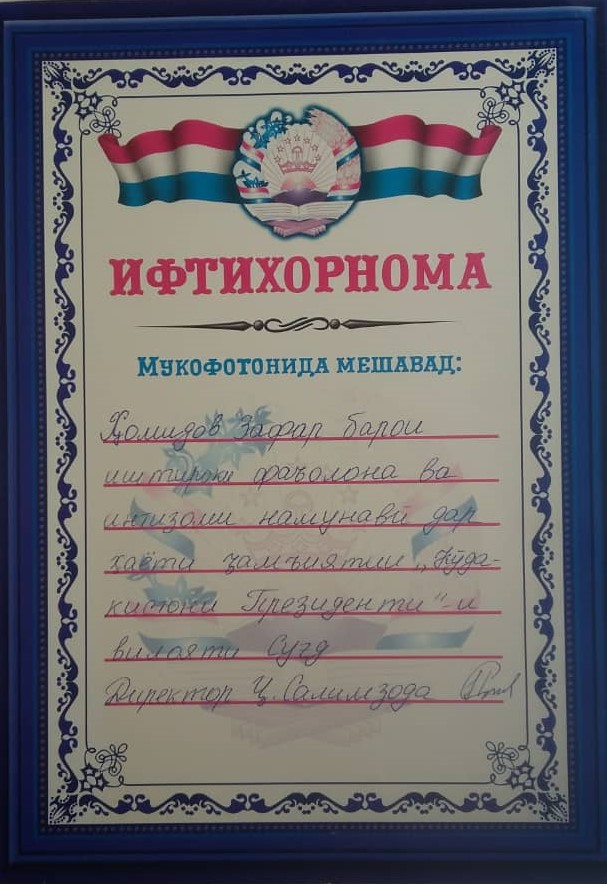 ИФТИХОРНОМА
Мукофотонида мешавад:
Ҳомидов Зафар барои
иштироки фаъолона ва
интизоми намунавӣ дар
хаёти ҷамъиятии „Кӯда-
кистони Президенти"-и
вилояти Суғд
Директор Ҷ. Салимзода